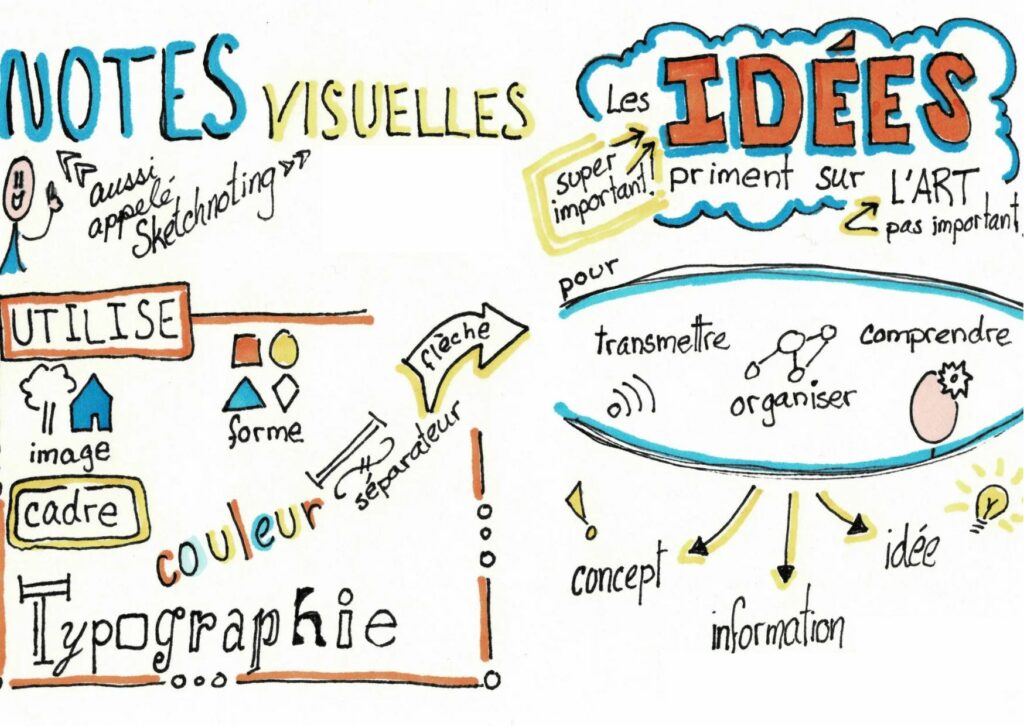 NOTES VISUELLES
aussi
appelé
Sketchnoting
Les IDÉES
priment sur L'ART
super
important!
pas important
UTILISE
image
forme
cadre
couleur
séparateur
flèche
Typographie
pour
transmettre
organiser
comprendre
concept
information
idée